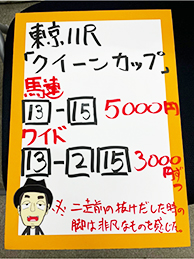 東京11R
「クイーンカップ」
馬連
13-15 5000円
ワイド
13-2 15 3000円ずつ
※二走前の抜けだした時の
脚は非凡なものを感じた。